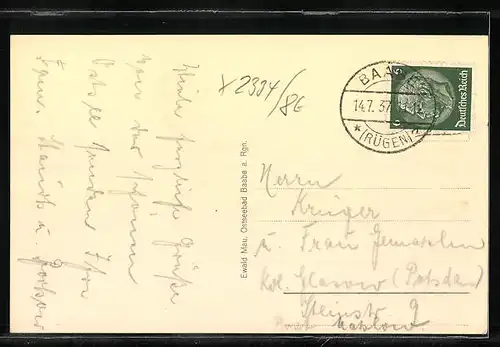 X 2394/86
BAABE
14.7.37
* (RÜGEN)
6
Deutsches Reich
Viele herzliche Grüße
von der schönen
Ostsee senden Ihnen
Fam.
Ewald Mau, Ostseebad Baabe a. Rgn.
Herrn
Krüger
u. Frau Gemahlin
Kol. Glasow (Potsdam)
Steinstr. 9
Mahlow.